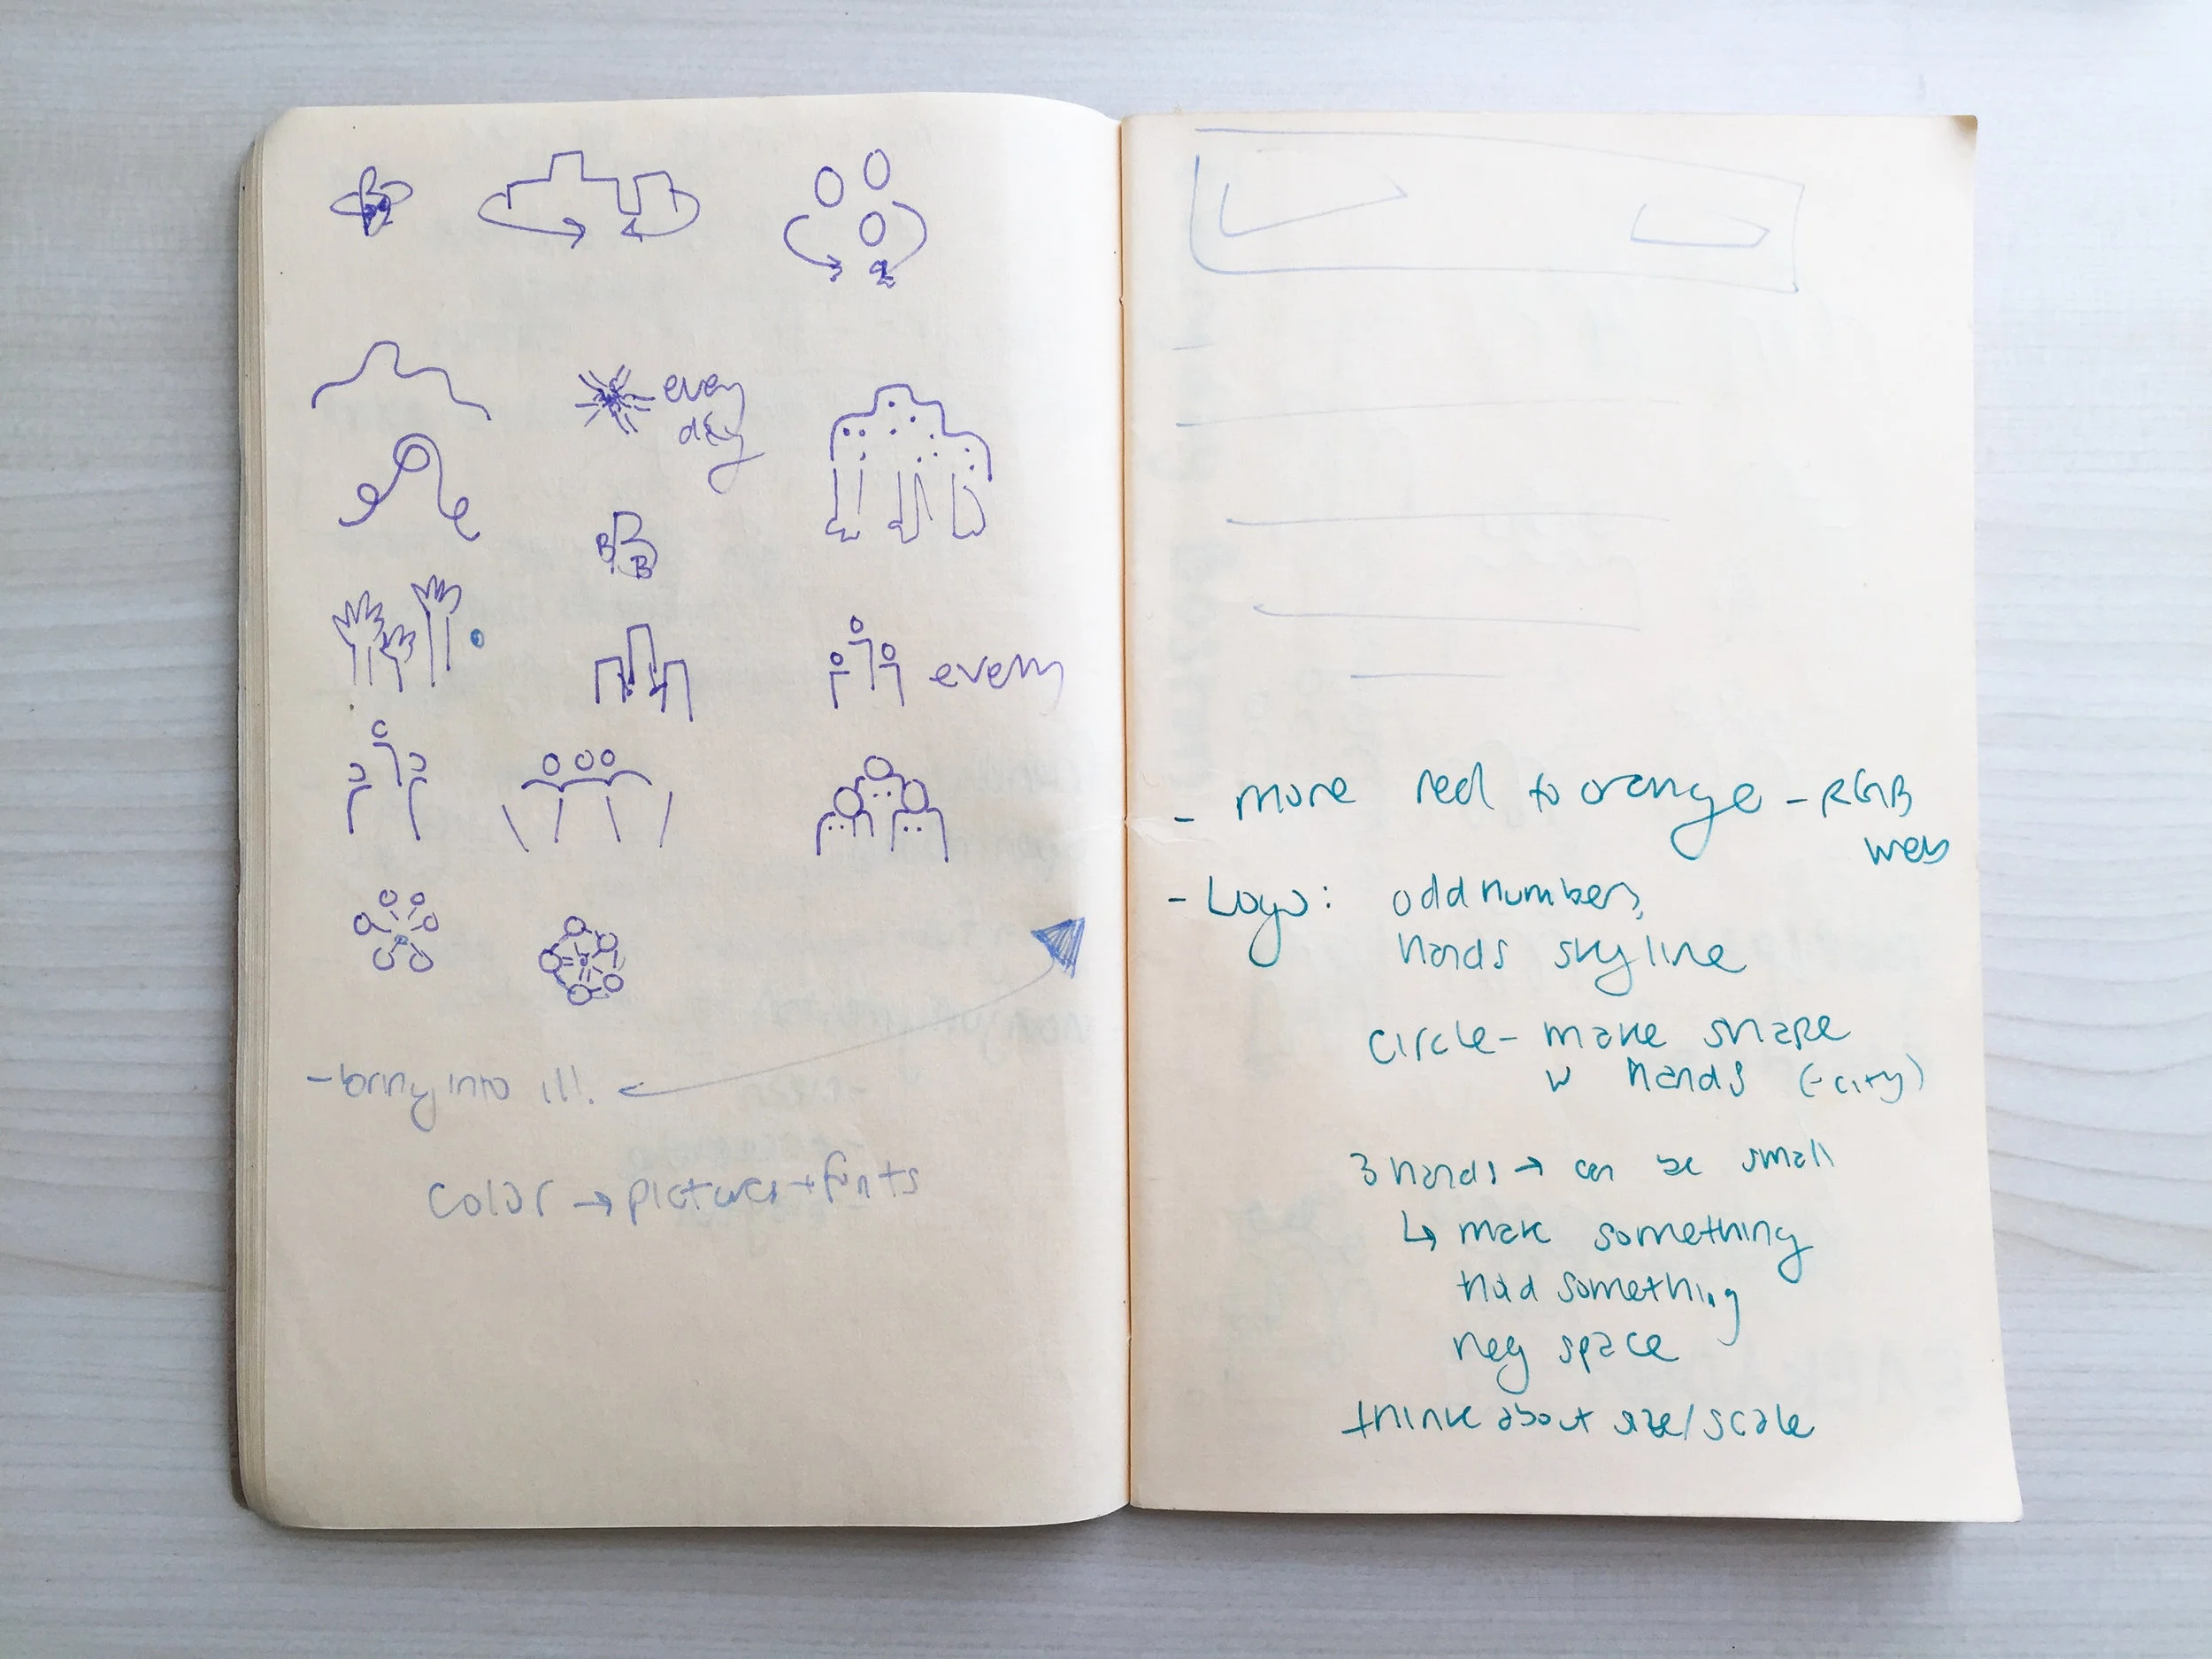 every
day
B B
B
- bring into it!
color → pictures + fonts
- more red to orange - RGB
web
- Logo: odd numbers,
hands skyline
circle - make shape
w hands (-city)
3 hands → can be small
↳ make something
had something
neg space
think about size/scale